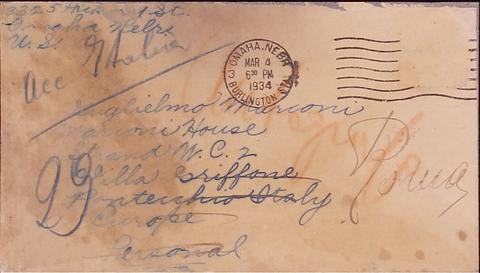 Omaha Nebr
U.S.
acc
OMAHA, NEBR
MAR 4
6 30 PM
1934
BURLINGTON STA.
3
Guglielmo Marconi
Marconi House
Strand W.C.2
Villa Griffone
Pontecchio Italy
Europe
Personal
Roma